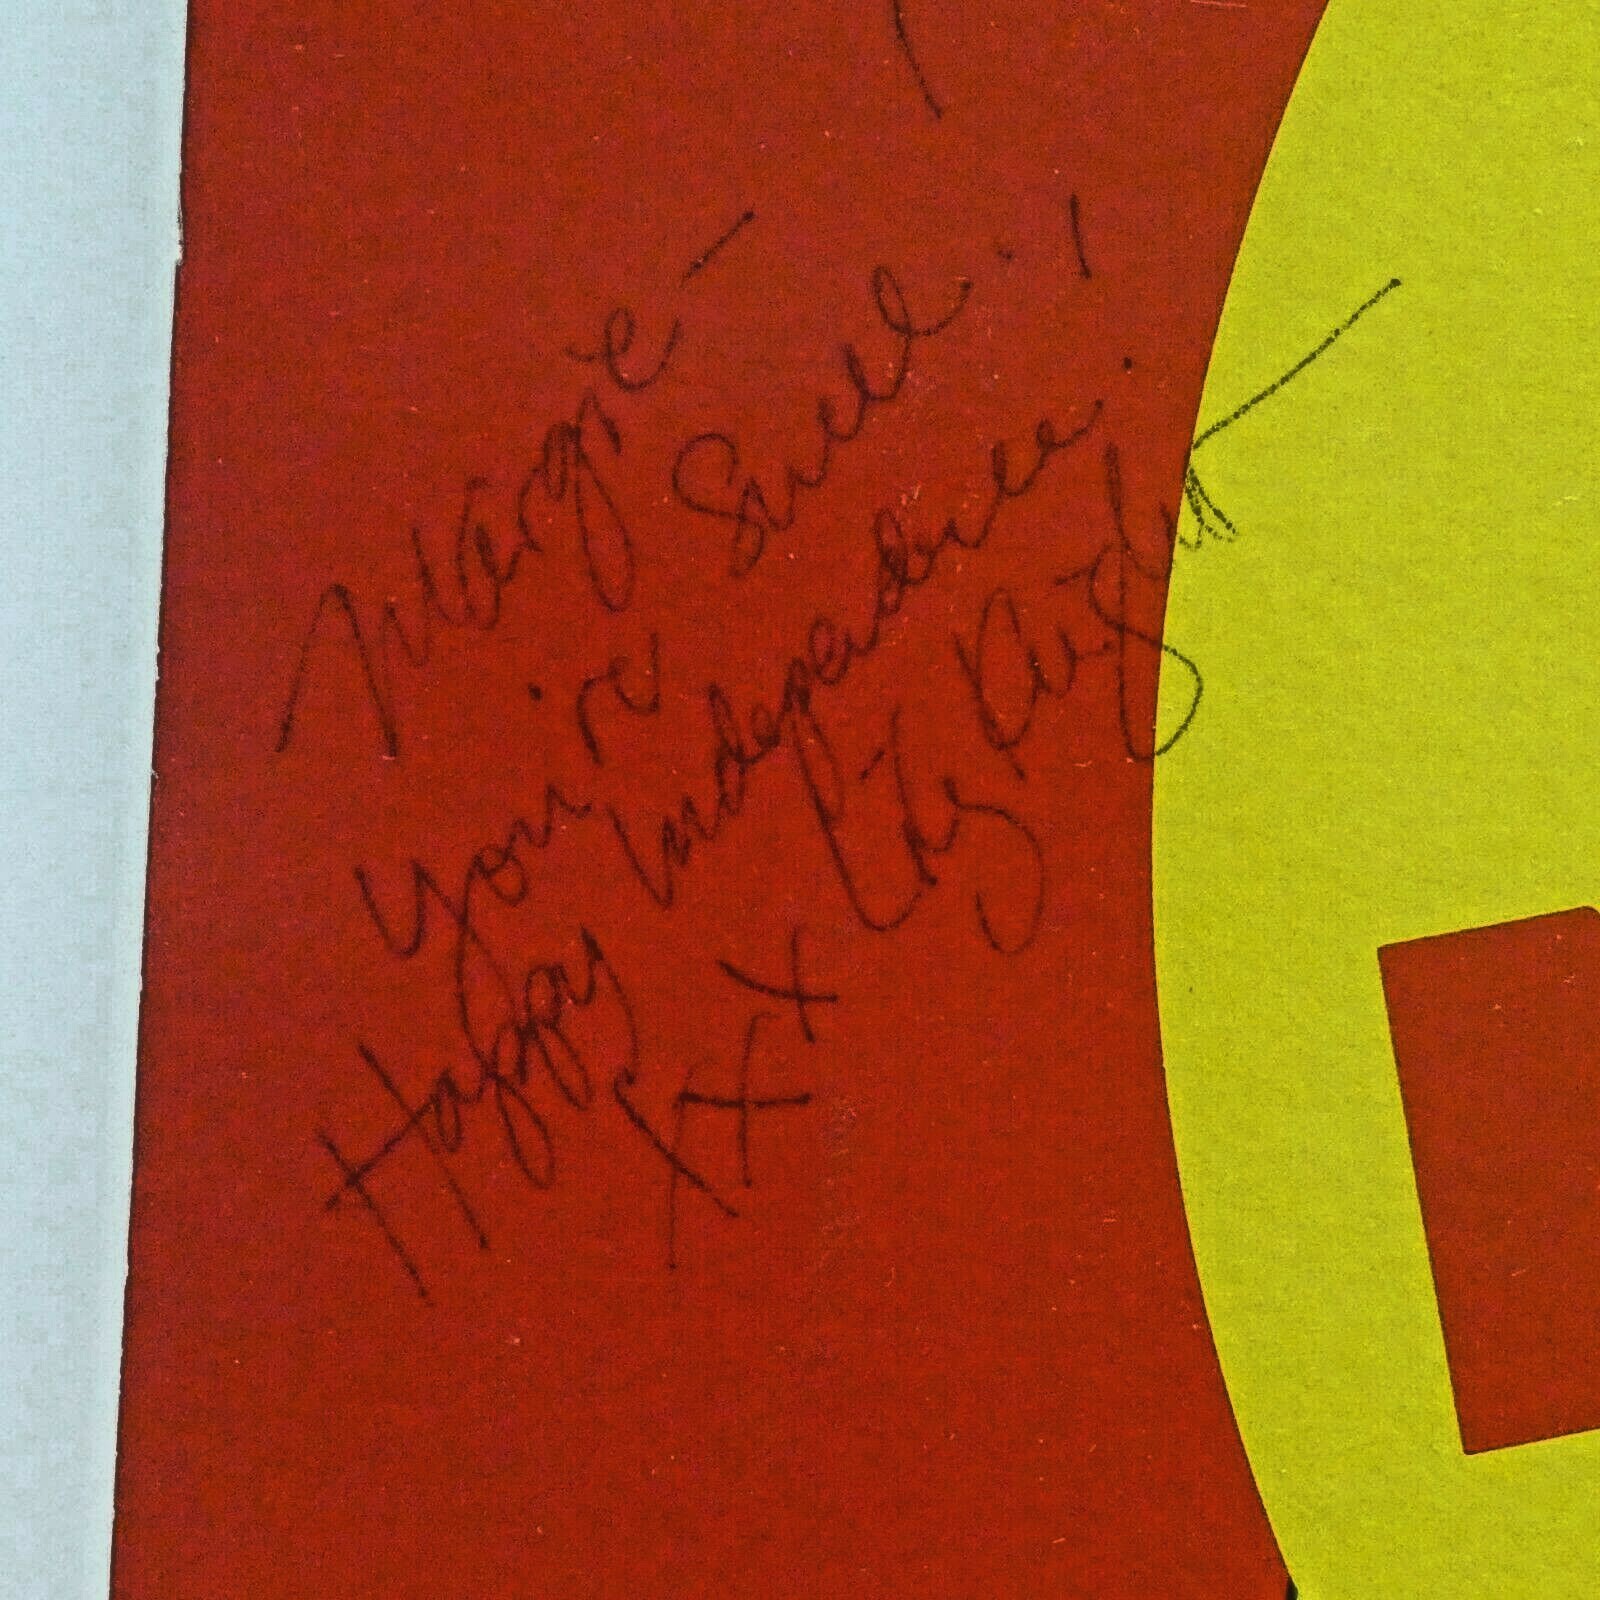 Margie -
You're Swell!
Happy Independence.
XXX